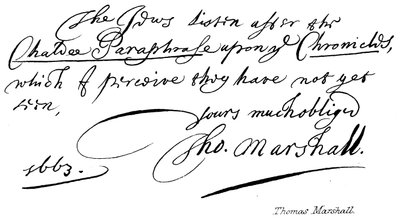 The Jews listen after the
Chaldee Paraphrase upon ye Chronicles,
which I perceive they have not yet
seen,
Yours much obliged
Tho. Marshall.
1663.
Thomas Marshall.